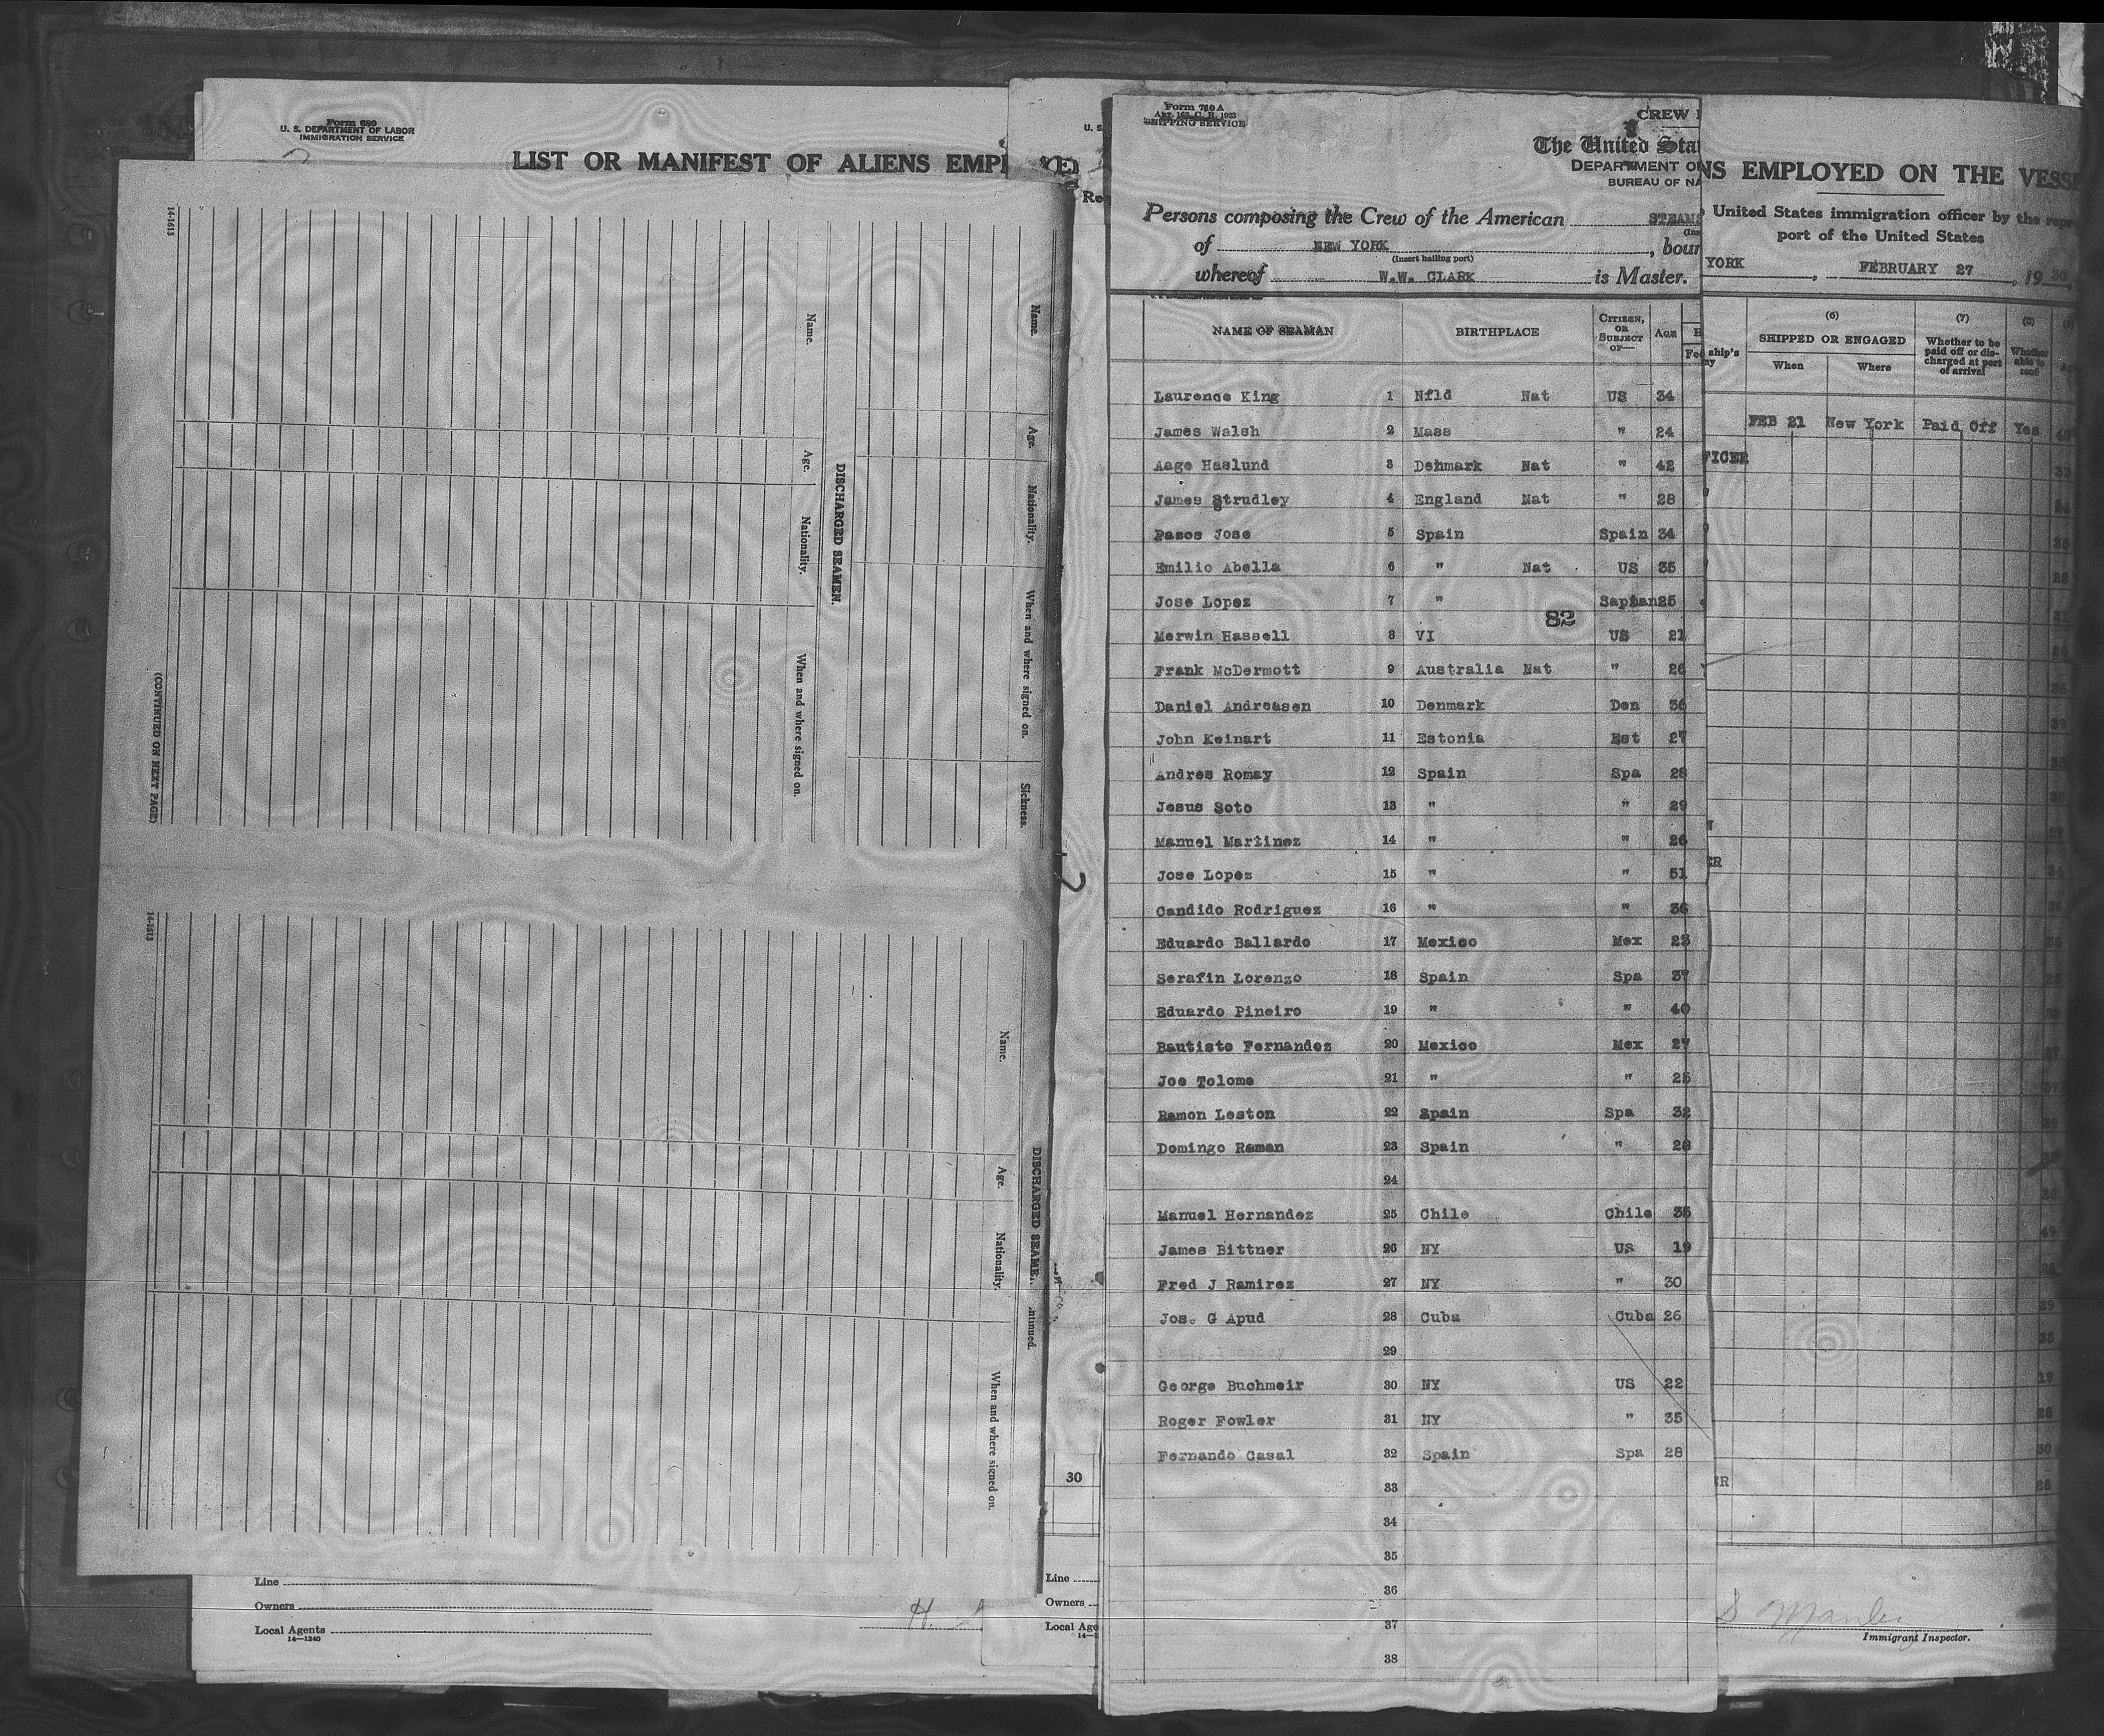 Form 680
U. S. DEPARTMENT OF LABOR
IMMIGRATION SERVICE
LIST OR MANIFEST OF ALIENS EMP
14-1613
Name.
Age.
Nationality.
When and where signed on.
Sickness.
DISCHARGED SEAMEN.
Name.
Age.
Nationality.
When and where signed on.
(CONTINUED ON NEXT PAGE)
14-1613
DISCHARGED SEAME
ntinued.
Name.
Age.
Nationality.
When and where signed on.
Line
Owners
Local Agents
14—1240
H.
U. S.
30
Line
Owners
Local Age
Form 710 A
SHIPPING SERVICE
CREW
The United Sta
DEPARTMENT O
BUREAU OF NA
Persons composing the Crew of the American STEAMS
of NEW YORK , boun
(Insert hailing port)
whereof W.W. CLARK is Master.
NAME OF SEAMAN BIRTHPLACE CITIZEN, OR SUBJECT OF— AGE
Laurence King 1 Nfld Nat US 34
James Walsh 2 Mass " 24
Aage Haslund 3 Denmark Nat " 42
James Strudley 4 England Nat " 28
Pazos Jose 5 Spain Spain 34
Emilio Abella 6 " Nat US 35
Jose Lopez 7 " Saphan 25
82
Merwin Hassell 8 VI US 21
Frank McDermott 9 Australia Nat " 26
Daniel Andreasen 10 Denmark Den 36
John Keinart 11 Estonia Est 27
Andres Romay 12 Spain Spa 28
Jesus Soto 13 " " 29
Manuel Martinez 14 " " 26
Jose Lopez 15 " " 51
Candido Rodriguez 16 " " 36
Eduardo Ballardo 17 Mexico Mex 23
Serafin Lorenzo 18 Spain Spa 37
Eduardo Pineiro 19 " " 40
Bautisto Fernandez 20 Mexico Mex 27
Joe Tolome 21 " " 25
Ramon Leston 22 Spain Spa 32
Domingo Raman 23 Spain " 28
24
Manuel Hernandez 25 Chile Chile 35
James Bittner 26 NY US 19
Fred J Ramirez 27 NY " 30
Jos. G Apud 28 Cuba Cuba 26
29
George Buchmeir 30 NY US 22
Roger Fowler 31 NY " 35
Fernando Casal 32 Spain Spa 28
33
34
35
36
37
38
NS EMPLOYED ON THE VESSE
United States immigration officer by the repr
port of the United States
YORK , FEBRUARY 27 , 19
ship's
(6)
SHIPPED OR ENGAGED
When Where
(7)
Whether to be paid off or discharged at port of arrival
(8)
Whether able to read
FEB 21 New York Paid Off Yes
FICER
ER
ER
Immigrant Inspector.